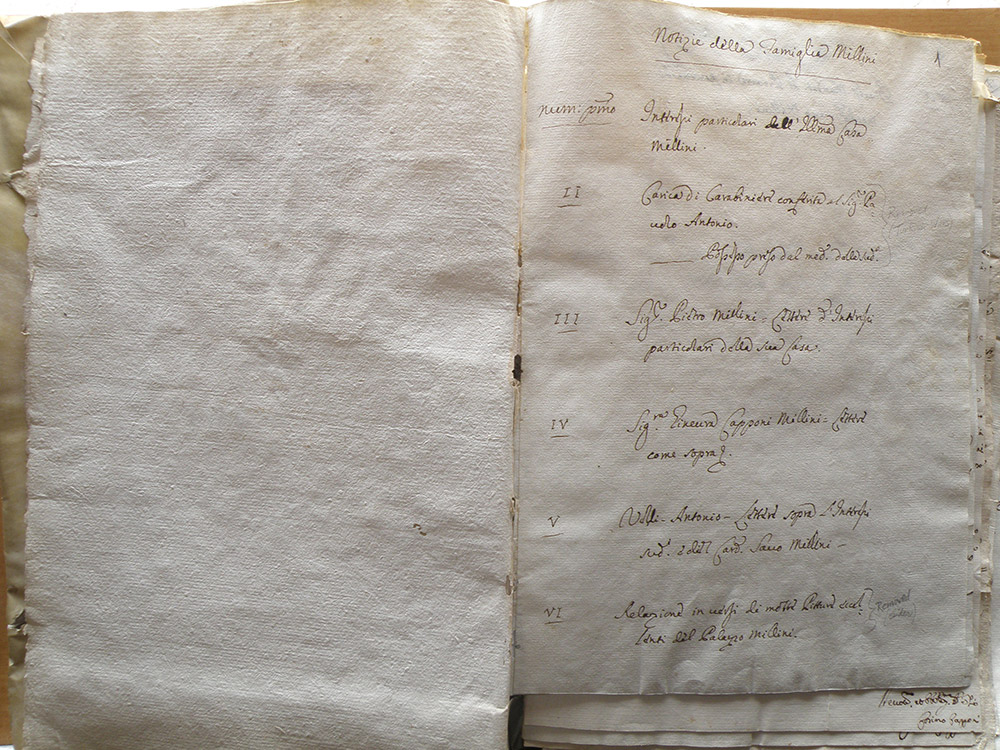 Notizie della Famiglia Millini
1
num: pmo
Interessi particolari dell' Illma Casa
Mellini.
II
Carica di Carabiniere conferita al Sigr. Pa
uolo Antonio.
Possesso preso dal med.
III
Sigr. Pietro Millini = Lettere d'Interessi
particolari della sua Casa.
IV
Sigra. Gineura Capponi Millini = Lettere
come sopra
V
Antonio = Lettere sopra l'Interessi
sud. e del Card. Sauo Millini =
VI
Relazione in uersi di molte Pitture eccel
lenti del Palazzo Millini.
Removed